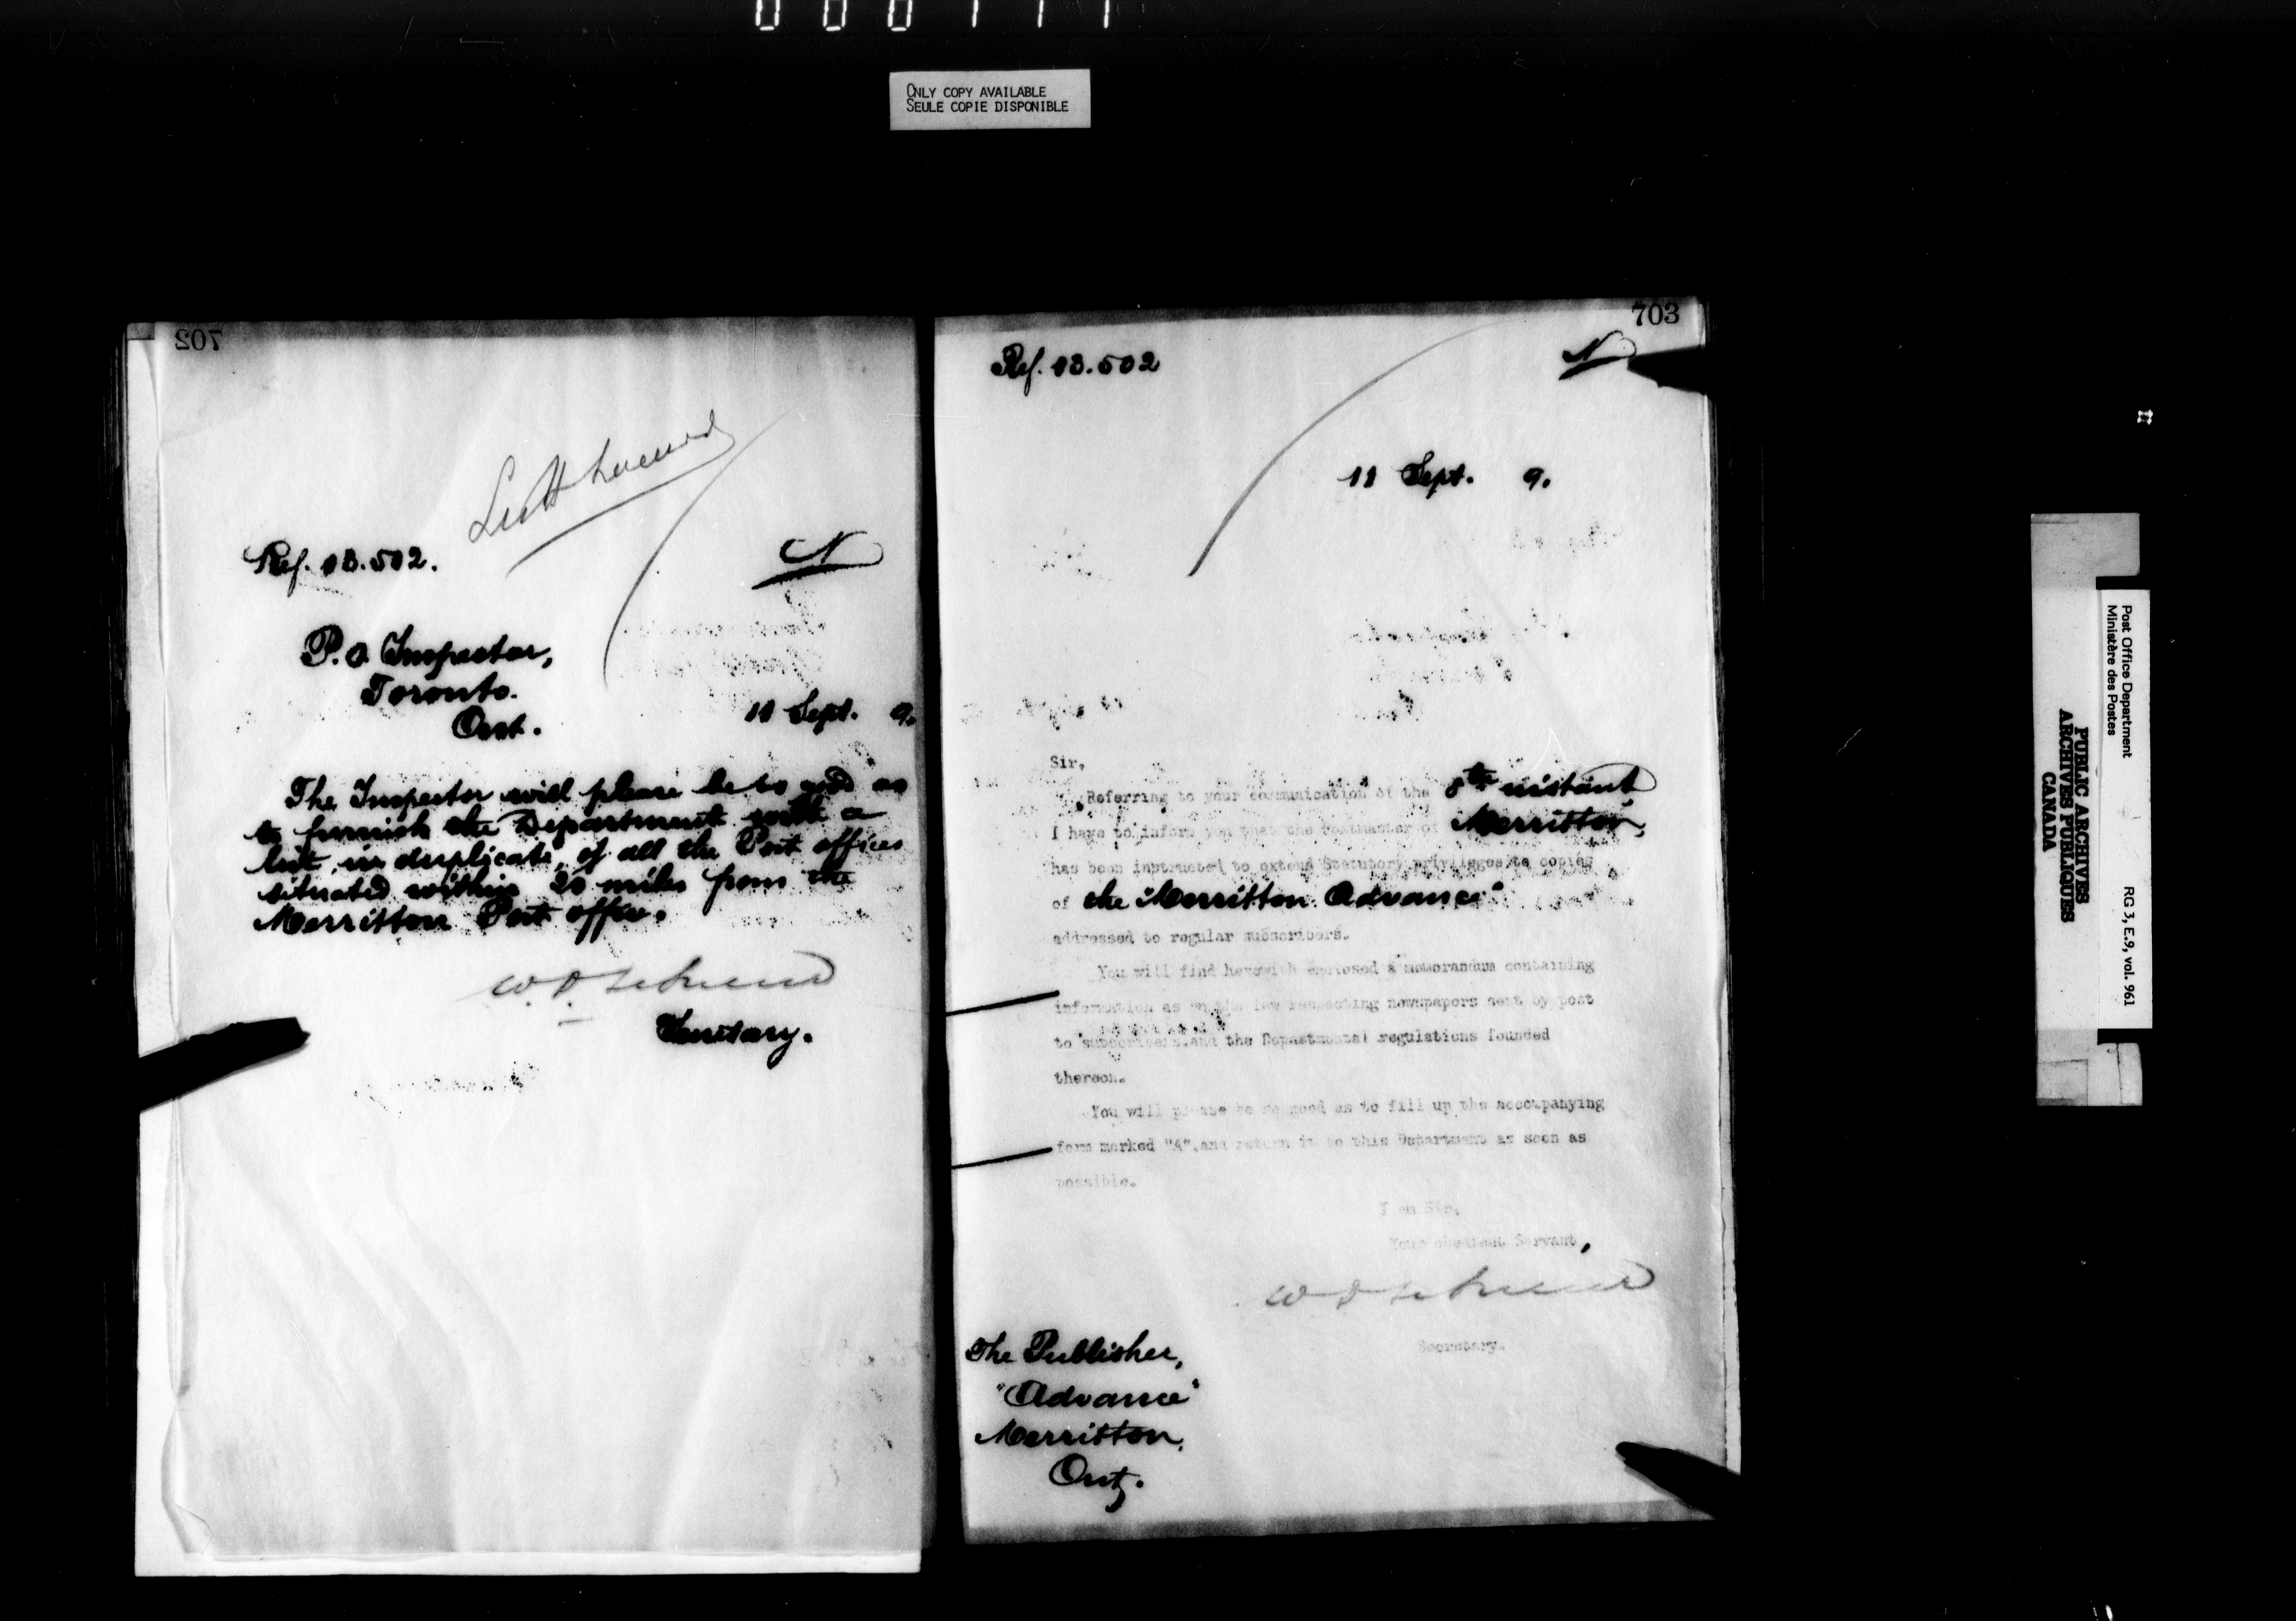 ONLY COPY AVAILABLE
SEULE COPIE DISPONIBLE
702
Ref. 13.502.
N
P.O Inspector,
Toronto.
Ont.
11 Sept. 9.
The Inspector will please be so good as
to furnish the Department with a
list, in duplicate, of all the Post offices
situated within 20 miles from the
Merritton Post office.
Secretary.
703
Ref. 13.502
N
11 Sept. 9.
Sir,
Referring to your communication of the 8th instant
I have to inform you that the Postmaster of Merritton,
has been instructed to extend Statutory privileges to copies
of the "Merritton Advance"
addressed to regular subscribers.
You will find herewith enclosed a memorandum containing
information as to the law respecting newspapers sent by post
to subscribers, and the Departmental regulations founded
thereon.
You will please be so good as to fill up the accompanying
form marked "A", and return it to this Department as soon as
possible.
I am Sir,
Your obedient Servant,
Secretary.
The Publisher,
"Advance"
Merritton,
Ont.
Post Office Department
Ministère des Postes
RG 3, E.9, vol. 961
PUBLIC ARCHIVES
ARCHIVES PUBLIQUES
CANADA